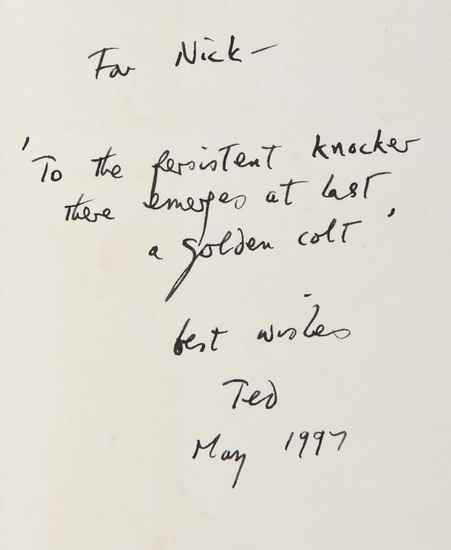 For Nick –
'To the persistent knocker
there emerges at last
a golden colt'
best wishes
Ted
May 1997